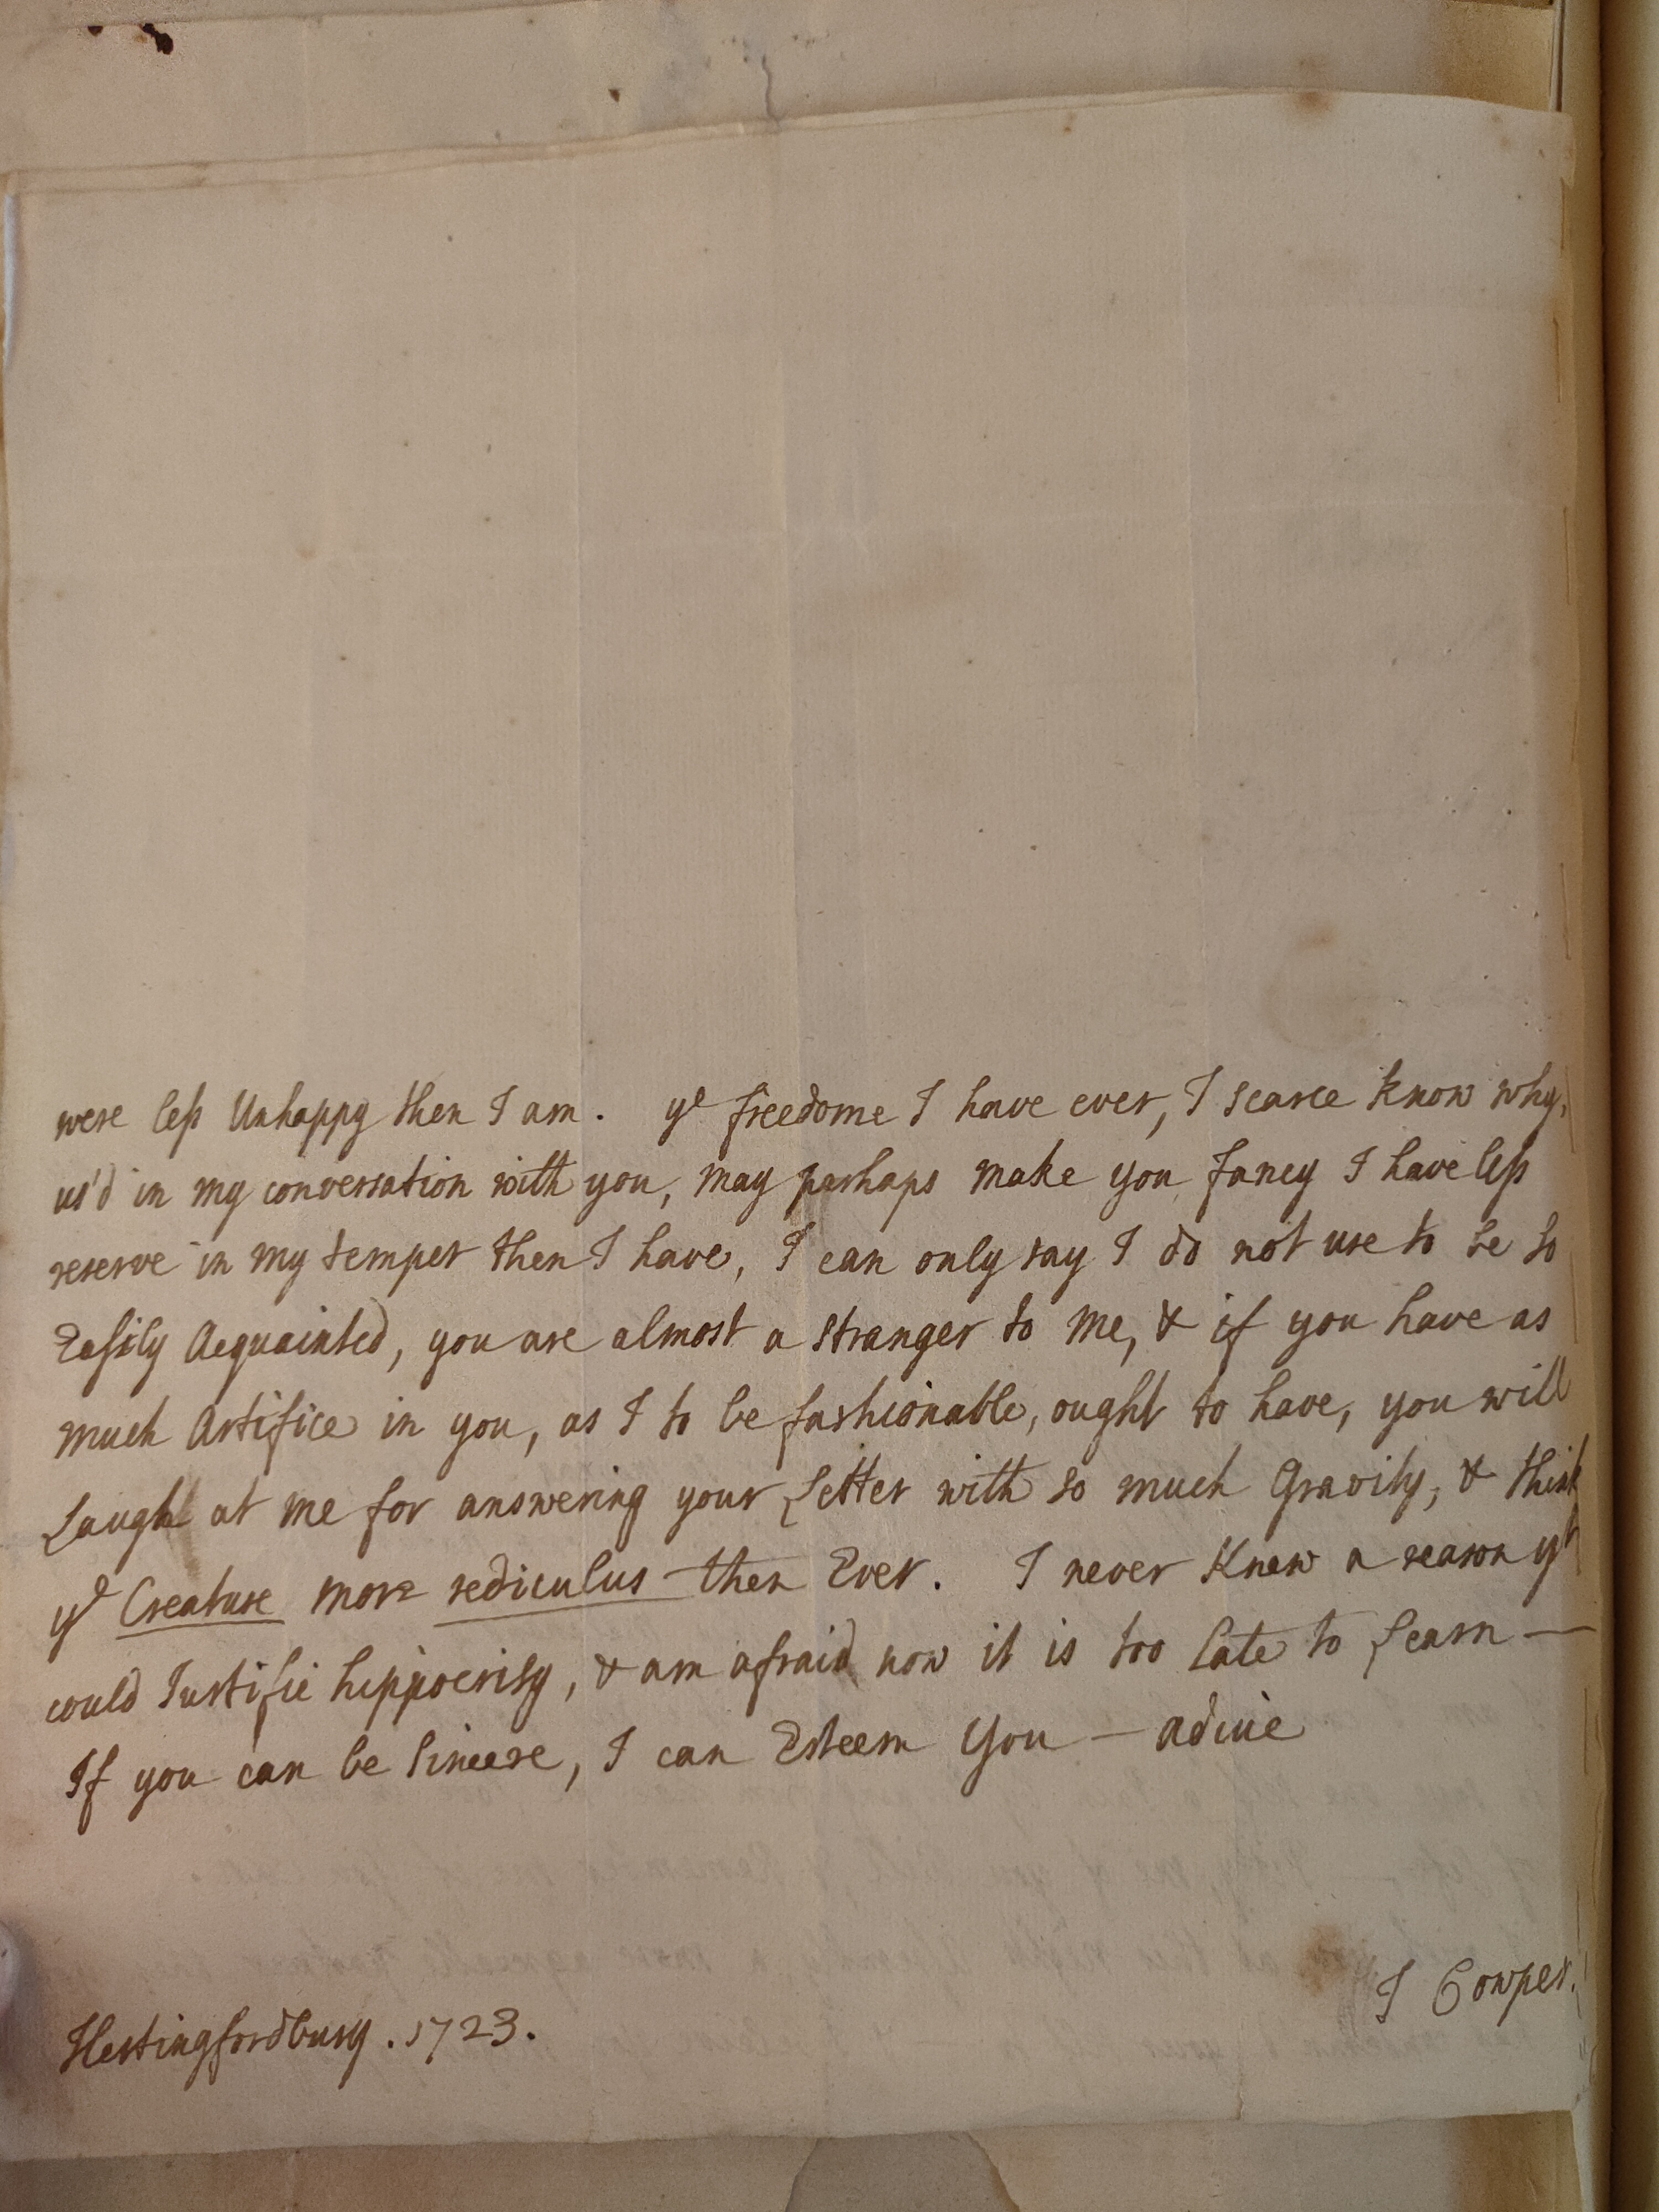 were less Unhappy then I am. ye freedome I have ever, I scarce know why,
us'd in my conversation with you, may perhaps make you fancy I have less
reserve in my temper then I have, I can only say I do not use to be so
Easily Acquainted, you are almost a stranger to me, & if you have as
much Artifice in you, as I to be fashionable, ought to have, you will
Laugh at me for answering your Letter with so much Gravity, & think
ye Creature more rediculus then Ever. I never knew a reason yt
could Justifie hippocrisy, & am afraid now it is too late to Learn —
If you can be Sincere, I can Esteem You — adiue
J Cowper.
Hertingfordbury. 1723.